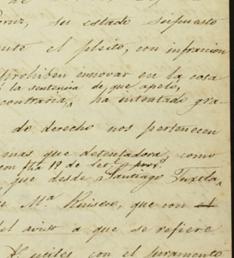 su estado supuesto
el pleito, con infraccion
prohiben innovar en la cosa
la sentencia de que apelo,
contraria, ha intentado gra
do derecho nos pertenecen
mas que detentadora, como
con fha 18 de
que desde Santiago Tuxtla,
Mª que con el
del aviso a que se refiere
utiles con el juramento